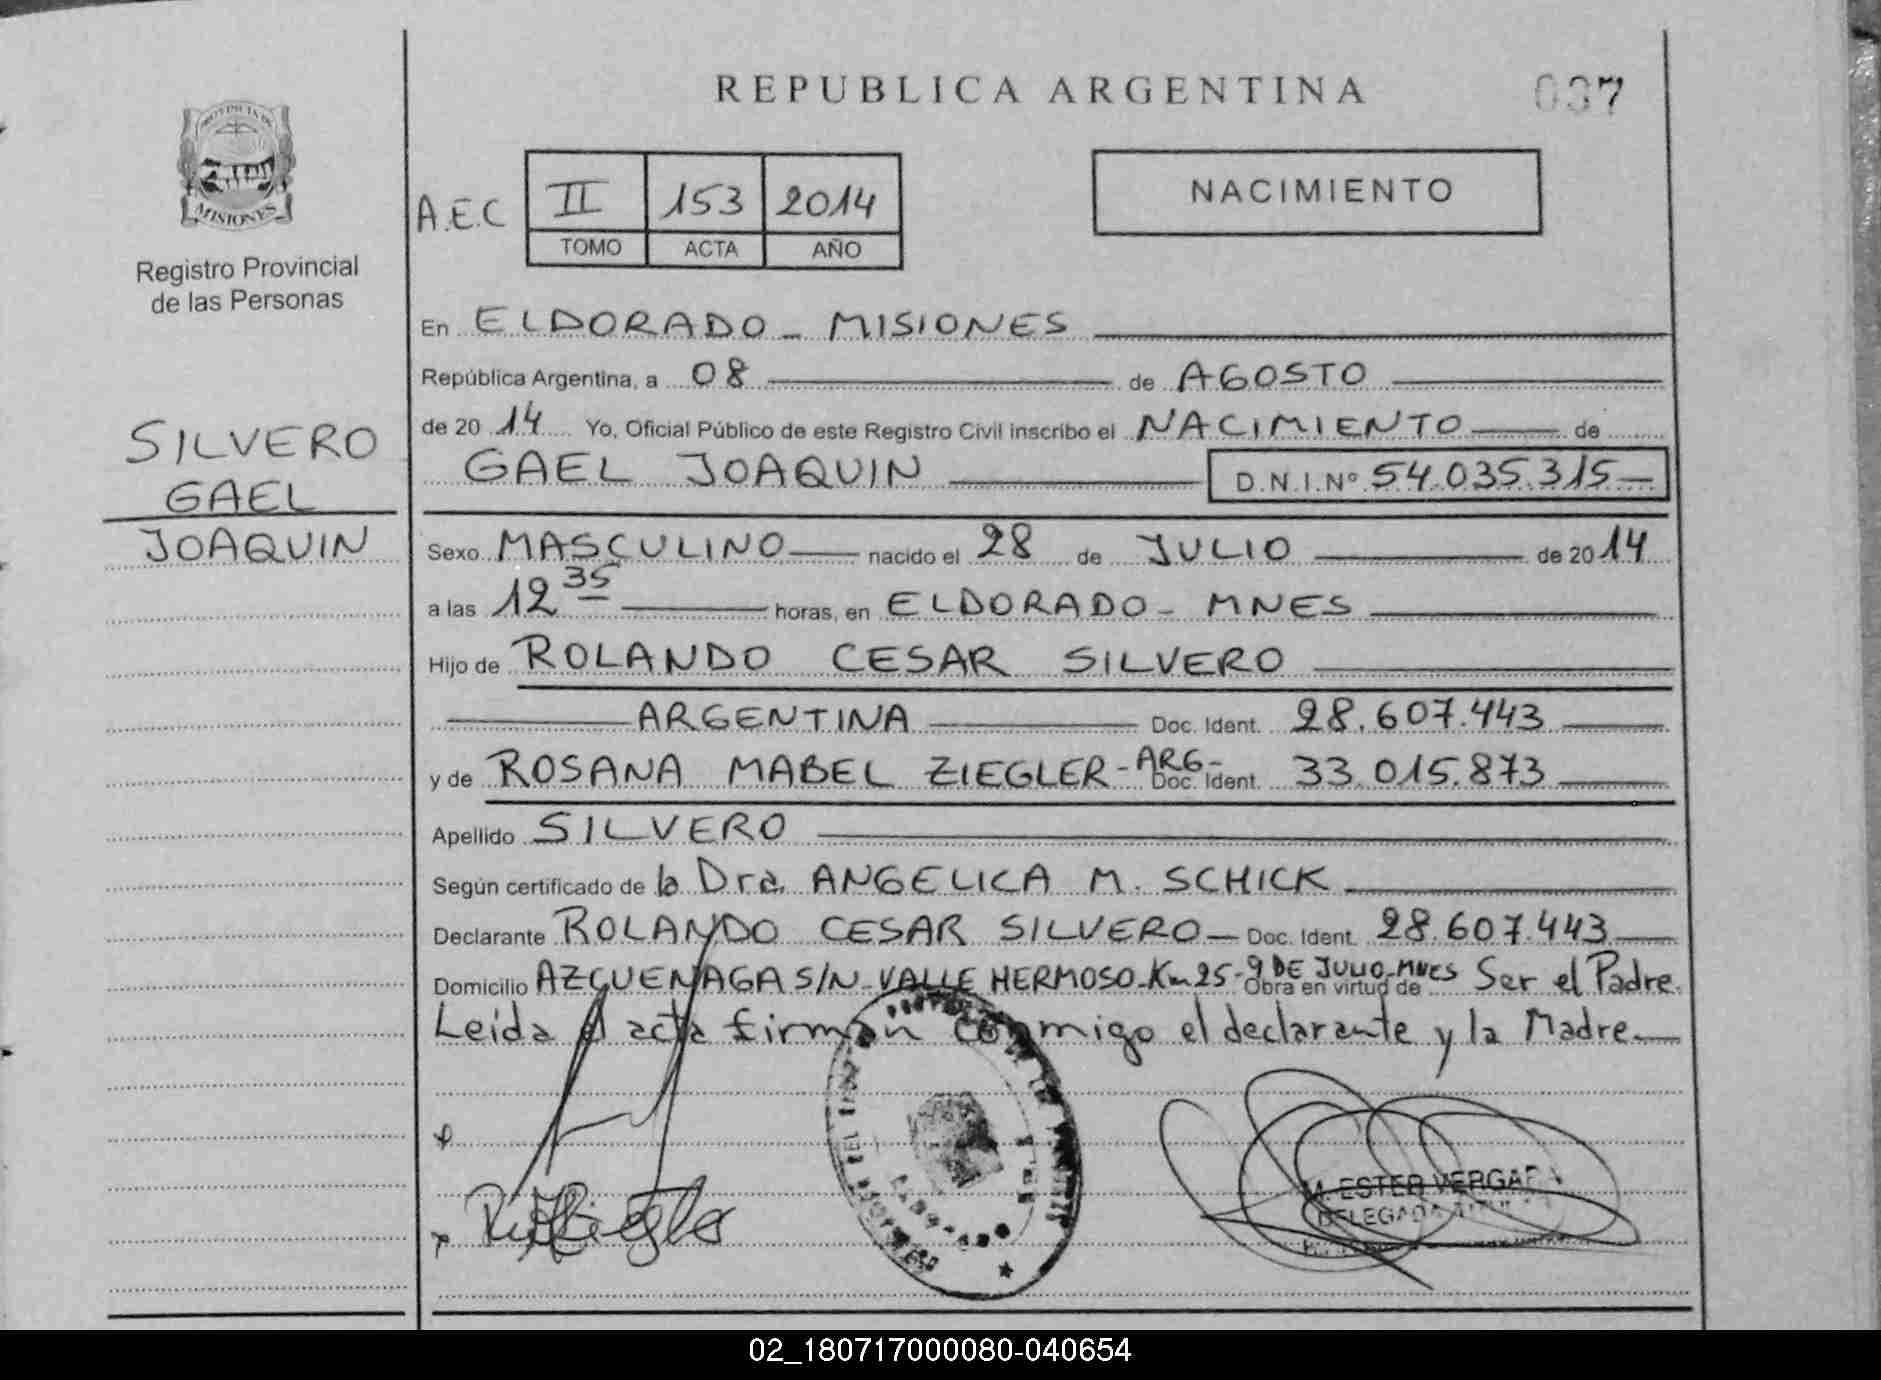 REPUBLICA ARGENTINA
037
PROVINCIA DE
MISIONES
Registro Provincial
de las Personas
A.E.C
II 153 2014
TOMO ACTA AÑO
NACIMIENTO
SILVERO
GAEL
JOAQUIN
En ELDORADO - MISIONES
República Argentina, a 08 de AGOSTO
de 2014 Yo, Oficial Público de este Registro Civil inscribo el NACIMIENTO de
GAEL JOAQUIN D.N.I.Nº 54.035.315
Sexo MASCULINO nacido el 28 de JULIO de 2014
a las 12 35 horas, en ELDORADO - MNES
Hijo de ROLANDO CESAR SILVERO
ARGENTINA Doc. Ident. 28.607.443
y de ROSANA MABEL ZIEGLER - ARG - Doc. Ident. 33.015.873
Apellido SILVERO
Según certificado de la Dra. ANGELICA M. SCHICK
Declarante ROLANDO CESAR SILVERO - Doc. Ident. 28.607.443
Domicilio AZCUENAGA S/N - VALLE HERMOSO - Km 25 - 9 DE JULIO - MNES Obra en virtud de Ser el Padre.
Leída el acta firman conmigo el declarante y la Madre.
M. ESTER VERGARA
DELEGADA TITULAR
02_180717000080-040654